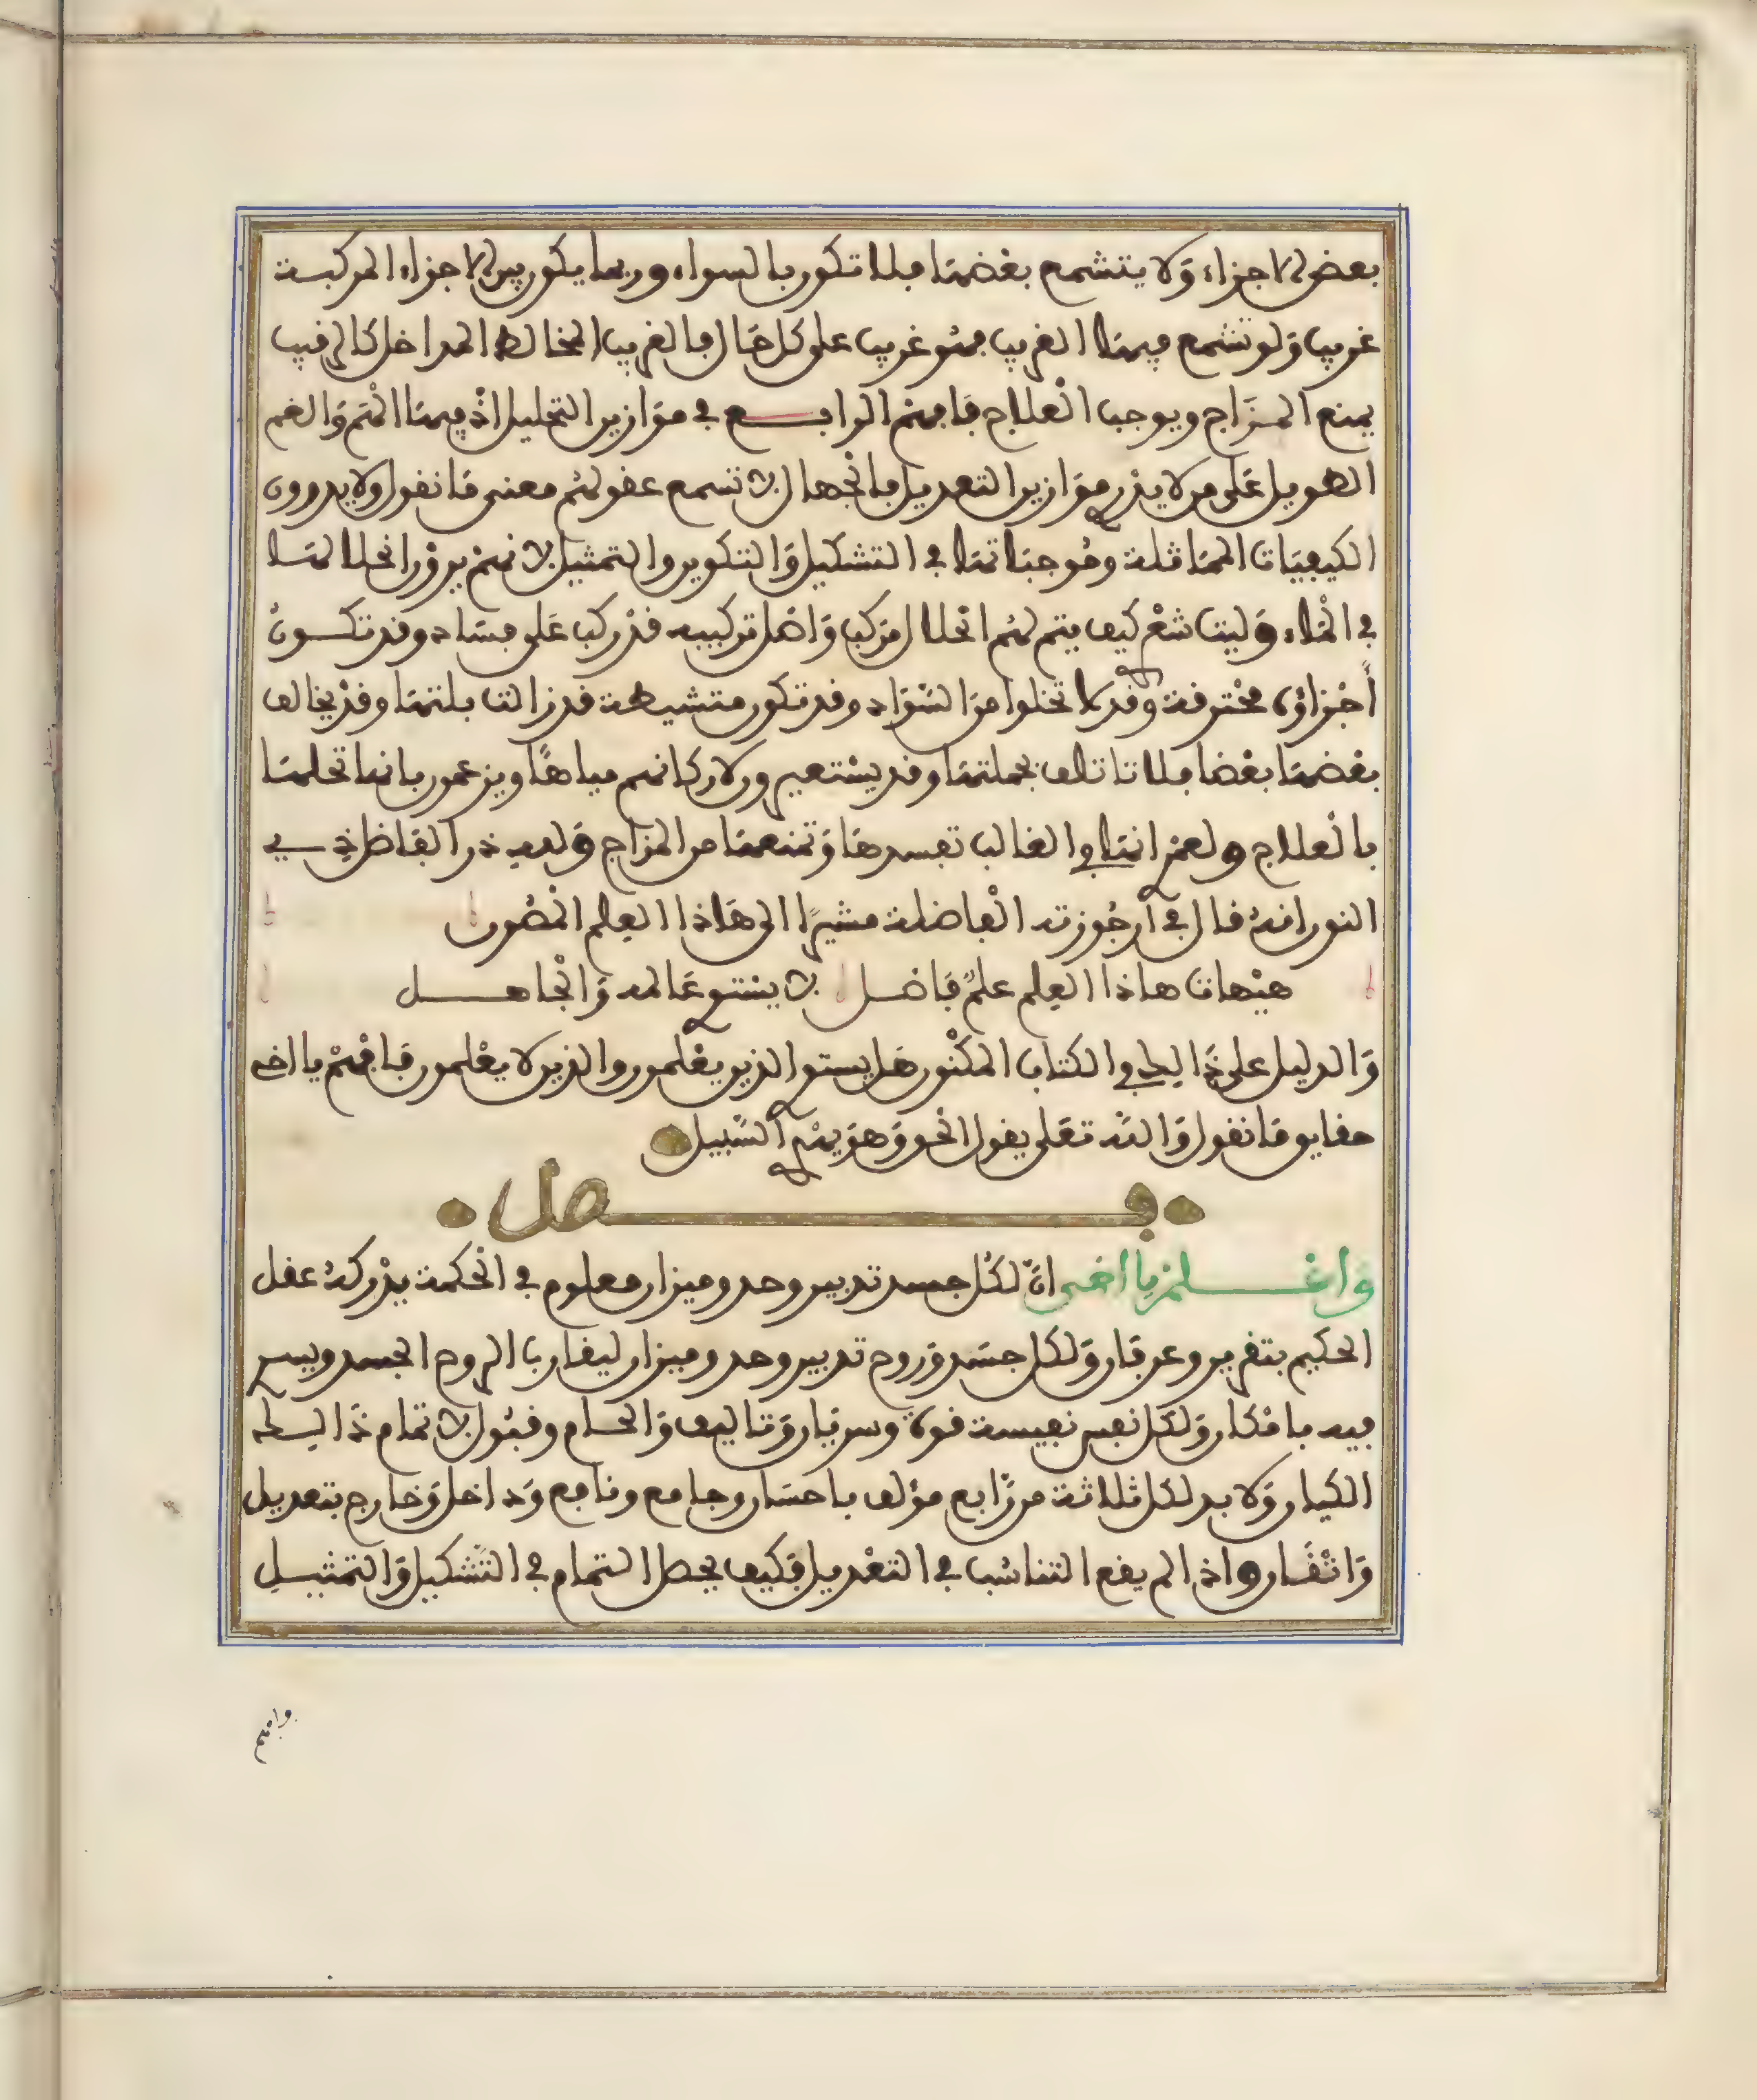 بعض الاجزاء وَلا يتشمع بعْضهَا فلا تكون بالسواء وربما يكون بين الاجزاء المركبة
غريب وَلو تشمع فيهَا الغريب فهُو غريب على كل حَال فالغريب المخالط المداخل كالرقيب
يمنع المـزَاج ويوجب الْعلاج فَافهم الرابـــع في موَازين التحليل اذْ فيهَا الْهَم وَالغم
الطويل عَلى من لا يدْري موَازين التعديل فالْجهال لا تسمع عقولهُم معنى مَا نقول ولا يدرون
الكيفيَات الممَاثلة ومُوجبَاتهَا في التشكيل وَالتكوين والتمثيل لانهم يرَوْن انحلالهَا
في الْمَاء وَليت شعْري كيف يتم لهُم انحلال مركب وَاصْل تركيبه قدْ ركب عَلى فسَاد وقد تكـــونُ
أجْزاؤه محْترقة وقد لا تخلوا من السّوَاد وقد تكون متشيطة قد زالت بلتهَا وقدْ يخالف
بعْضهَا بعْضا فلا تاتلف بجملتهَا وقد يسْتعيرون لاركانهم مياهًا ويزعمون بانها تحلهَا
بالْعلاج ولعمْري انهَا في الغالب تفسدهَا وَتمنعهَا من المزاج وَلله در الفَاضل ذِي
النون انهُ قال في أرجُوزته الْفاضلة مشيرًا الى هَاذا العِلم الْمصُون
هيْهات هاذا العِلم علمٌ فَاضـل لا يسْتوي عَالمه وَالْجاهـــل
وَالدليل على ذَالك في الكتاب المكْنون هَل يستوي الذين يعْلمون والذين لا يعْلمون فَافهَمْ يا اخي
حقايق مَا نقول وَاللّه تعَلى يقول الحق وَهوَ يهْدي السّبيل
فـــــــصل
وَاعْــــلمْ يا اخي انّ لكُل جسد تدبير وحد وميزان معلوم في الحكمة يدْركهُ عقل
الحكيم بتقرير وعرفَان وَلكل جسَد وَروح تدبير وحد وميزان ليقارب الروح الجسد ويسر
فيه بامْكان وَلكل نفس نفيسة قوة وسريَان وَتاليف وَالحام وقبُول لا تمام ذَالـك
الكيان وَلا بد لكل ثلاثة من رّابع مؤلف باحسَان وجامع ونافع وَداخل وَخارج بتعديل
وَاتْقَان واذا لم يقع التناسُب في التعْديل فكيف يحصل التمام في التّشكيل وَالتمثيــل
وافهم